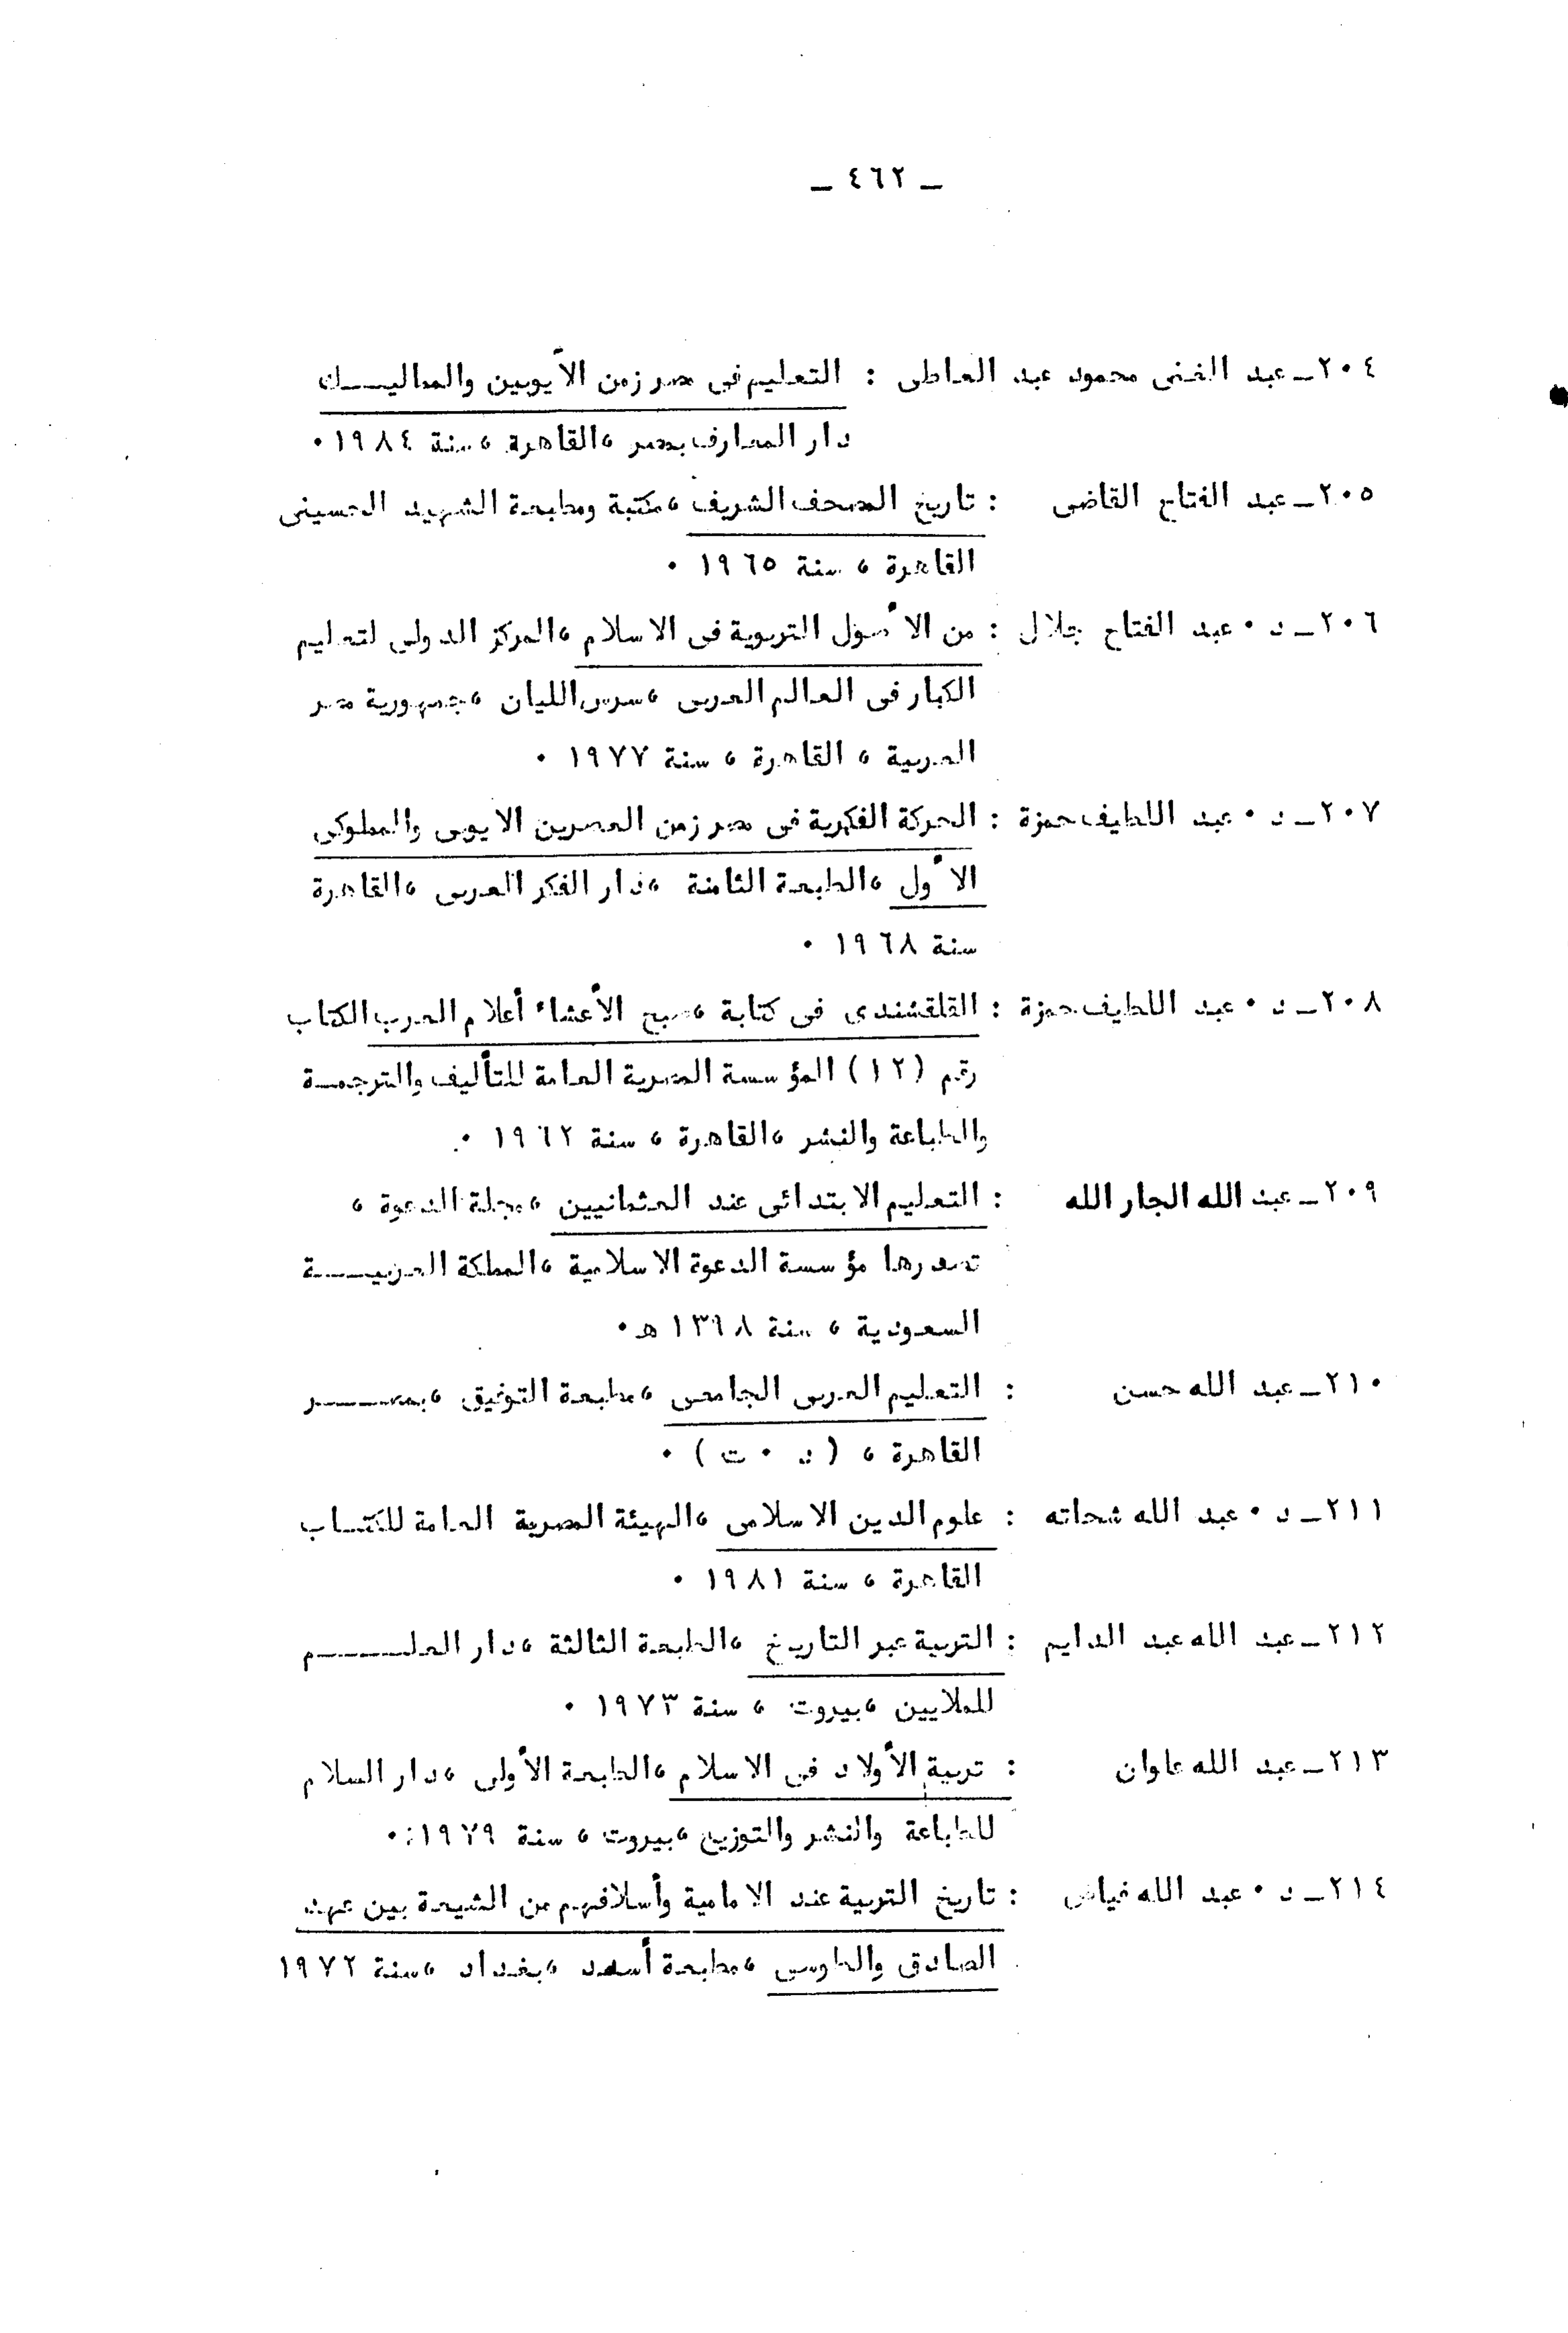 ـ ٤٦٢ ـ
٢٠٤ـ عبد الغنى محمود عبد العاطى : التعليم فى مصر زمن الأيوبين والمماليـــك
دار المعارف بمصر ، القاهرة ، سنة ١٩٨٤ .
٢٠٥ـ عبد الفتاح القاضى : تاريخ المصحف الشريف ، مكتبة ومطبعة الشهيد الحسينى
القاهرة ، سنة ١٩٦٥ .
٢٠٦ـ د . عبد الفتاح جلال : من الأصول التربوية فى الاسلام ، المركز الدولى لتعليم
الكبار فى العالم العربى ، سرس الليان ، جمهورية مصر
العربية ، القاهرة ، سنة ١٩٧٧ .
٢٠٧ـ د . عبد اللطيف حمزة : الحركة الفكرية فى مصر زمن العصرين الايوبى والمملوكى
الأول ، الطبعة الثامنة ، دار الفكر العربى ، القاهرة
سنة ١٩٦٨ .
٢٠٨ـ د . عبد اللطيف حمزة : القلقشندى فى كتابة ، صبح الأعشاء أعلام العرب الكتاب
رقم (١٢) المؤسسة المصرية العامة للتأليف والترجمـة
والطباعة والنشر ، القاهرة ، سنة ١٩٦٢ .
٢٠٩ـ عبد الله الجار الله : التعليم الابتدائى عند العثمانيين ، مجلة الدعوة ،
تصدرها مؤسسة الدعوة الاسلامية ، المملكة العربيـــة
السعودية ، سنة ١٣٩٨ هـ .
٢١٠ـ عبد الله حسن : التعليم العربى الجامعى ، مطبعة التوفيق ، بمصــــر
القاهرة ، (د . ت) .
٢١١ـ د . عبد الله شحاته : علوم الدين الاسلامى ، الهيئة المصرية العامة للكتـاب
القاهرة ، سنة ١٩٨١ .
٢١٢ـ عبد الله عبد الدايم : التربية عبر التاريخ ، الطبعة الثالثة ، دار العلـــــم
للملايين ، بيروت ، سنة ١٩٧٣ .
٢١٣ـ عبد الله علوان : تربية الأولاد فى الاسلام ، الطبعة الأولى ، دار السلام
للطباعة والنشر والتوزيع ، بيروت ، سنة ١٩٧٩ .
٢١٤ـ د . عبد الله فياض : تاريخ التربية عند الامامية وأسلافهم من الشيعة بين عهد
الصادق والطوسى ، مطبعة أسعد ، بغداد ، سنة ١٩٧٢